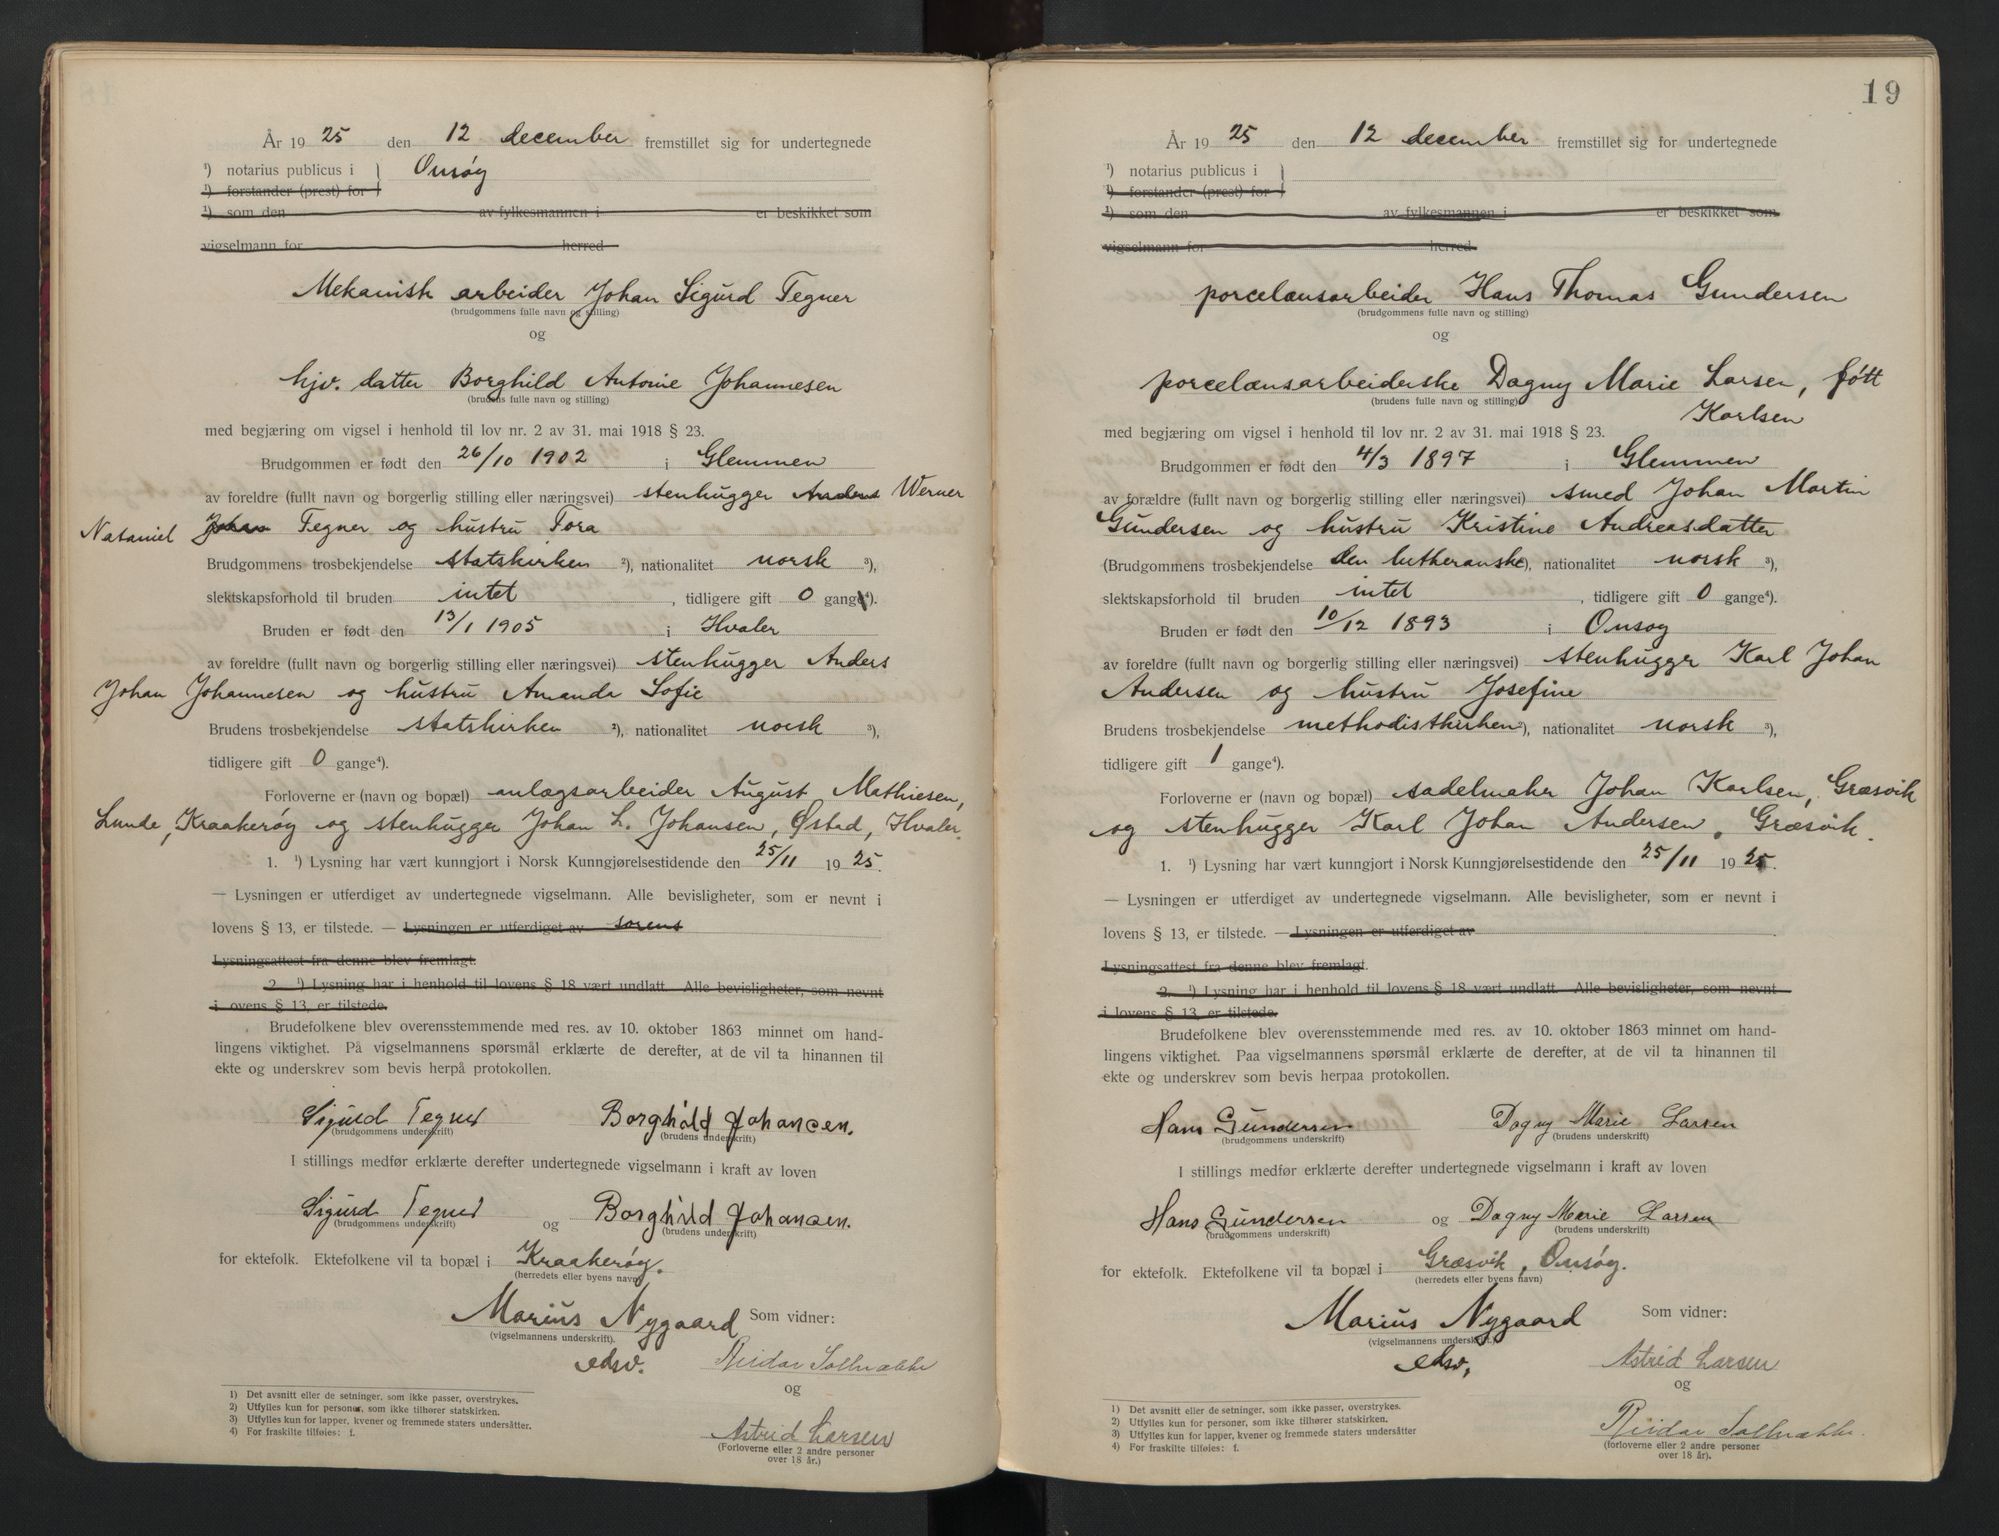 År 1925 den 12 december fremstillet sig for undertegnede
¹) notarius publicus i } Onsøy
¹) forstander (prest) for
¹) som den av fylkesmannen i er beskikket som
vigselmann for herred
Mekanisk arbeider Johan Sigurd Tegner
(brudgommens fulle navn og stilling)
og
hjv. datter Borghild Antonie Johannesen
(brudens fulle navn og stilling)
med begjæring om vigsel i henhold til lov nr. 2 av 31. mai 1918 § 23.
Brudgommen er født den 26/10 1902 i Glemmen
av foreldre (fullt navn og borgerlig stilling eller næringsvei) stenhugger Anders Werner
Nataniel Johan Tegner og hustru Tora
Brudgommens trosbekjendelse statskirken ²), nationalitet norsk ³),
slektskapsforhold til bruden intet, tidligere gift 0 gange⁴).
Bruden er født den 13/1 1905 i Hvaler
av foreldre (fullt navn og borgerlig stilling eller næringsvei) stenhugger Anders
Johan Johannesen og hustru Amanda Sofie
Brudens trosbekjendelse statskirken ²), nationalitet norsk ³),
tidligere gift 0 gange⁴).
Forloverne er (navn og bopæl) anlægsarbeider August Mathiesen,
Lunde, Kraakerøy og stenhugger Johan L. Johansen, Østad, Hvaler.
1. ¹) Lysning har vært kunngjort i Norsk Kunngjørelsestidende den 25/11 1925.
— Lysningen er utferdiget av undertegnede vigselmann. Alle bevisligheter, som er nevnt i
lovens § 13, er tilstede. — Lysningen er utferdiget av sorens
Lysningsattest fra denne blev fremlagt.
2. ¹) Lysning har i henhold til lovens § 18 vært undlatt. Alle bevisligheter, som nevnt
i lovens § 13, er tilstede.
Brudefolkene blev overensstemmende med res. av 10. oktober 1863 minnet om hand-
lingens viktighet. På vigselmannens spørsmål erklærte de derefter, at de vil ta hinannen til
ekte og underskrev som bevis herpå protokollen.
Sigurd Tegner Borghild Johansen.
(brudgommens underskrift) (brudens underskrift)
I stillings medfør erklærte derefter undertegnede vigselmann i kraft av loven
Sigurd Tegner og Borghild Johansen.
(brudgommens underskrift) (brudens underskrift)
for ektefolk. Ektefolkene vil ta bopæl i Kraakerøy.
(herredets eller byens navn)
Marius Nygaard Som vidner:
(vigselmannens underskrift).
edsv. Reidar Solbrække
og
Astrid Larsen
(Forloverne eller 2 andre personer
over 18 år.)
1) Det avsnitt eller de setninger, som ikke passer, overstrykes.
2) Utfylles kun for personer, som ikke tilhører statskirken.
3) Utfylles kun for lapper, kvener og fremmede staters undersåtter.
4) For fraskilte tilføies: f.
19
År 1925 den 12 december fremstillet sig for undertegnede
¹) notarius publicus i }
¹) forstander (prest) for
¹) som den av fylkesmannen i er beskikket som
vigselmann for herred
porcelænsarbeider Hans Thomas Gundersen
(brudgommens fulle navn og stilling)
og
porcelænsarbeiderske Dagny Marie Larsen, født
(brudens fulle navn og stilling) Karlsen
med begjæring om vigsel i henhold til lov nr. 2 av 31. mai 1918 § 23.
Brudgommen er født den 4/3 1897 i Glemmen
av forældre (fullt navn og borgerlig stilling eller næringsvei) smed Johan Martin
Gundersen og hustru Kristine Andreasdatter
(Brudgommens trosbekjendelse den lutheranske), nationalitet norsk ³),
slektskapsforhold til bruden intet, tidligere gift 0 gange⁴).
Bruden er født den 10/12 1893 i Onsøy
av forældre (fullt navn og borgerlig stilling eller næringsvei) stenhugger Karl Johan
Andersen og hustru Josefine
Brudens trosbekjendelse methodistkirken ²), nationalitet norsk ³),
tidligere gift 1 gange⁴).
Forloverne er (navn og bopæl) sadelmaker Johan Karlsen, Græsvik
og stenhugger Karl Johan Andersen, Græsvik.
1. ¹) Lysning har vært kunngjort i Norsk Kunngjørelsestidende den 25/11 1925.
— Lysningen er utferdiget av undertegnede vigselmann. Alle bevisligheter, som er nevnt i
lovens § 13, er tilstede. — Lysningen er utferdiget av
Lysningsattest fra denne blev fremlagt.
2. ¹) Lysning har i henhold til lovens § 18 vært undlatt. Alle bevisligheter, som nevnt
i lovens § 13, er tilstede.
Brudefolkene blev overensstemmende med res. av 10. oktober 1863 minnet om hand-
lingens viktighet. Paa vigselmannens spørsmål erklærte de derefter, at de vil ta hinannen til
ekte og underskrev som bevis herpaa protokollen.
Hans Gundersen Dagny Marie Larsen
(brudgommens underskrift) (brudens underskrift)
I stillings medfør erklærte derefter undertegnede vigselmann i kraft av loven
Hans Gundersen og Dagny Marie Larsen
(brudgommens underskrift) (brudens underskrift)
for ektefolk. Ektefolkene vil ta bopæl i Græsvik, Onsøy.
(herredets eller byens navn)
Marius Nygaard Som vidner:
(vigselmannens underskrift.)
edsv. Astrid Larsen
og
Reidar Solbrække.
(forloverne eller 2 andre personer
over 18 år).
1) Det avsnitt eller de setninger, som ikke passer, overstrykes.
2) Utfylles kun for personer, som ikke tilhører statskirken.
3) Utfylles kun for lapper, kvener og fremmede staters undersåtter
4) For fraskilte tilføies: f.